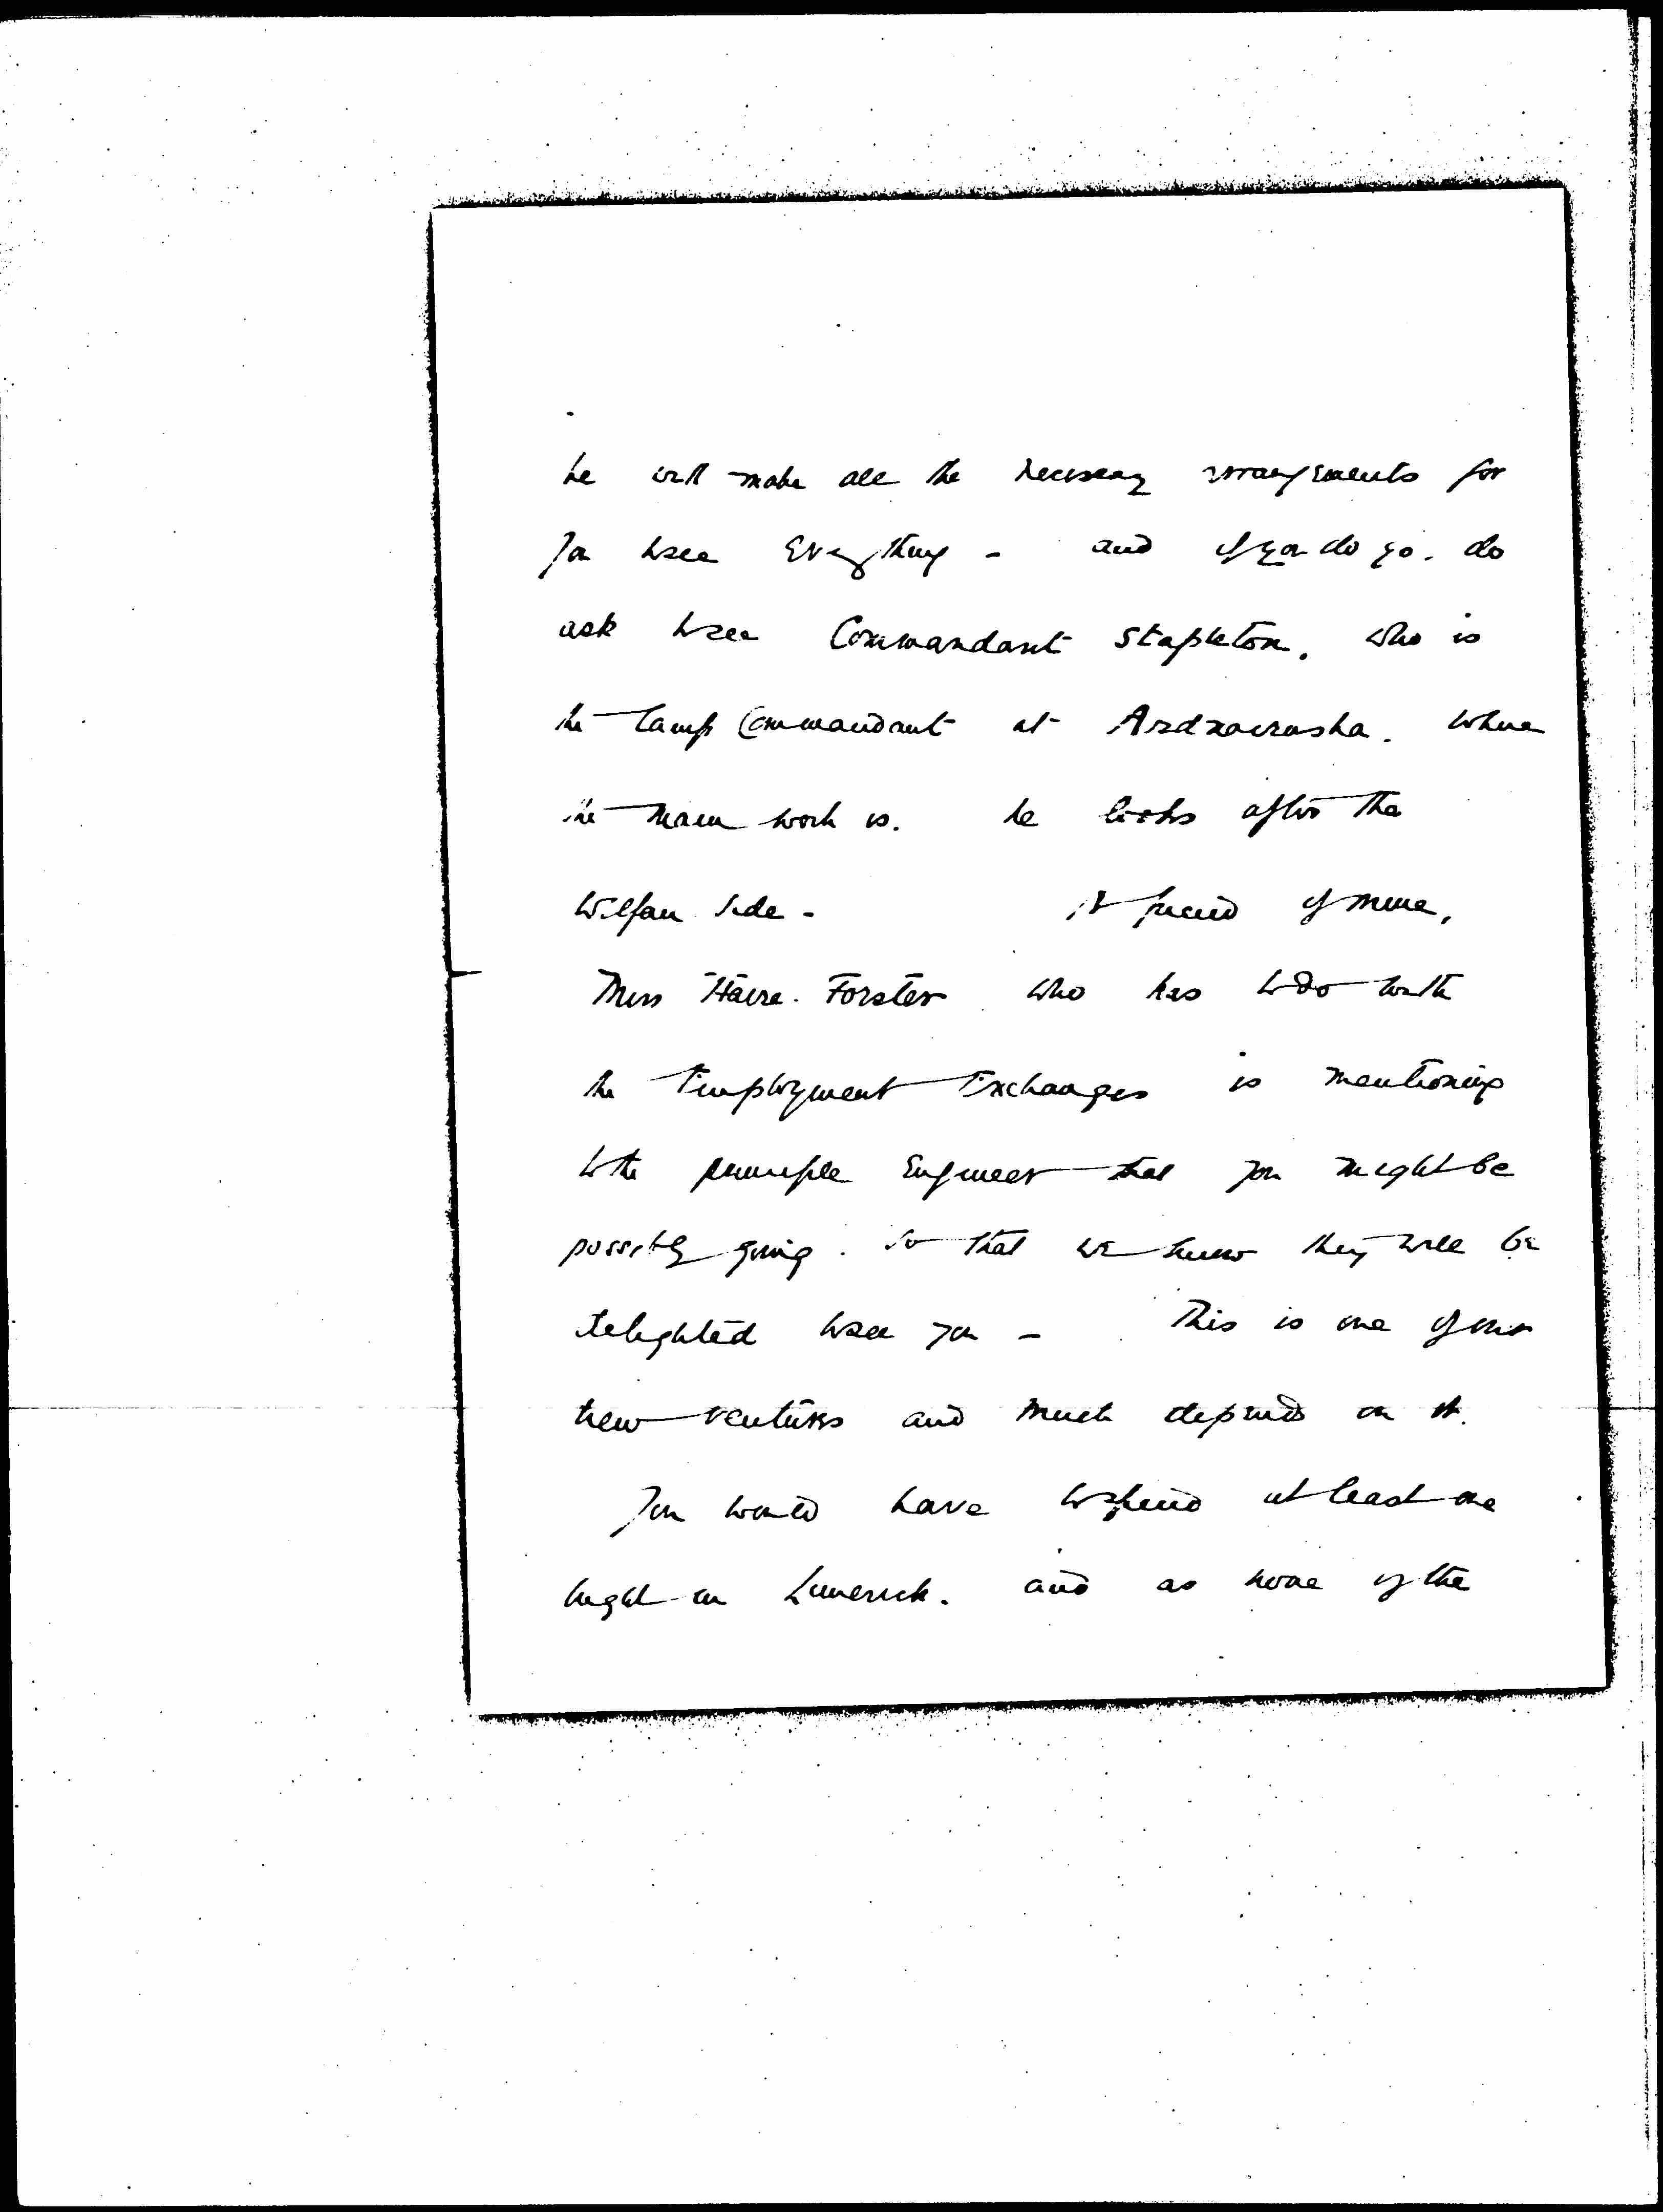 he will make all the necessary arrangements for
you to see Everything - and if you do go. do
ask to see Commandant Stapleton. who is
the Camp Commandant at Ardnacrusha. where
the main work is. he looks after the
Welfare side - A friend of mine,
Miss Haire-Forster who has to do with
the Employment Exchanges is mentioning
to the principle Engineer that you might be
possibly going. so that we know they will be
delighted to see you - This is one of our
new ventures and much depends on it.
You would have to spend at least one
night in Limerick. and as none of the